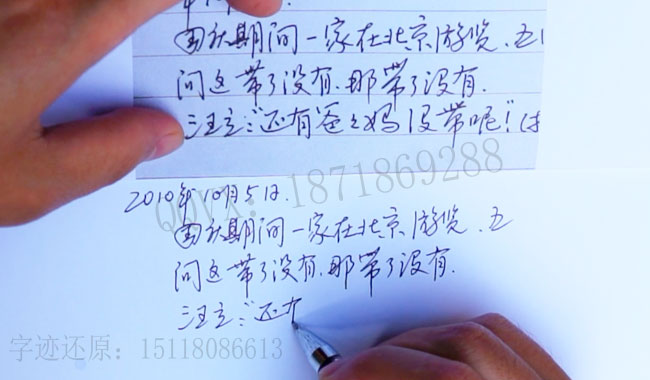 国庆期间一家在北京游览.五
问这带了没有.那带了没有.
汪立:"还有爸々妈没带呢!"
QQVX：1871869288
2010年10月5日.
国庆期间一家在北京游览.五
问这带了没有.那带了没有.
汪立:"还有
字迹还原：15118086613